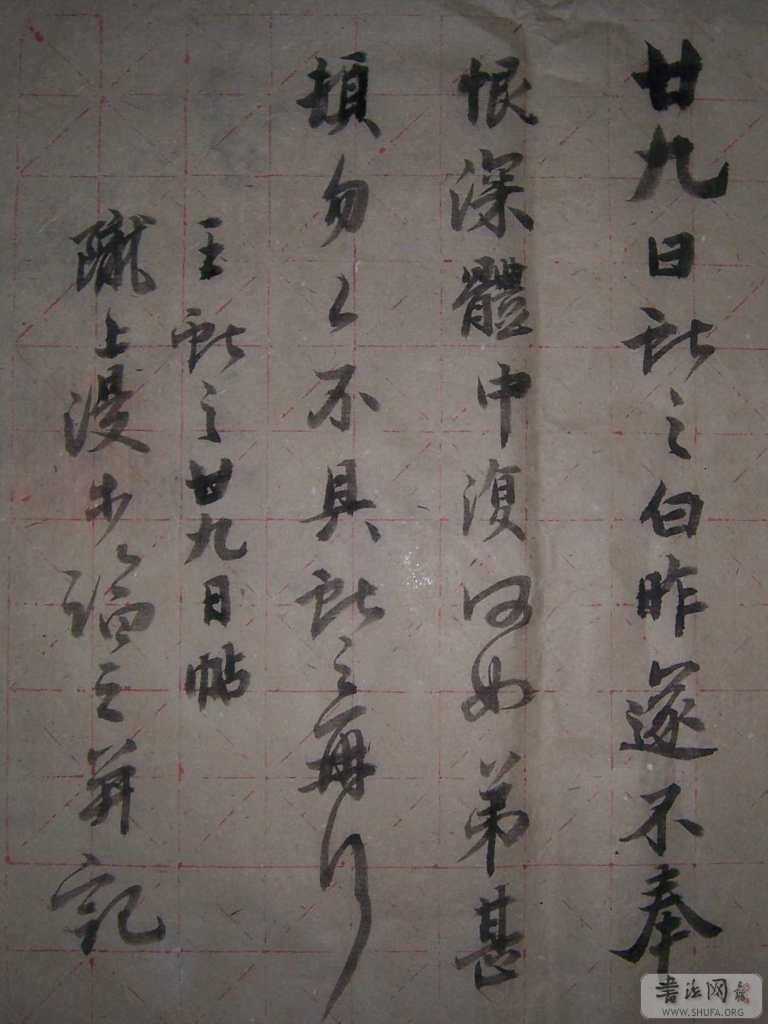 廿九日献之白昨遂不奉
恨深體中復何如弟甚
頓勿々不具献之再拜
王献之廿九日帖
隴上漫步臨之并記
書法网
WWW.SHUFA.ORG